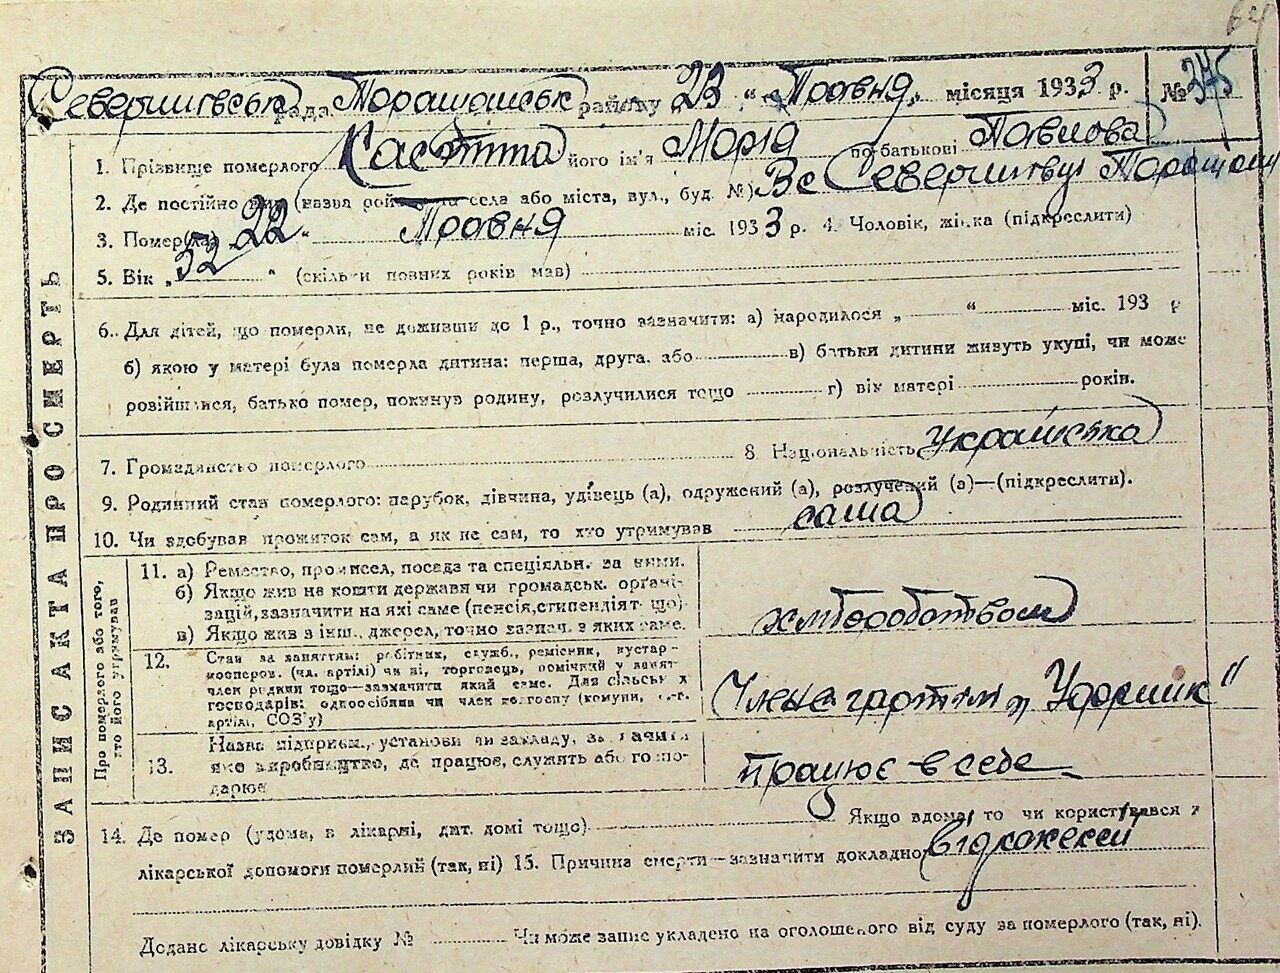 64
Северинівськ рада Таращанськ району „23“ „Травня„ місяця 1933 р. № 375
1. Прізвище померлого Касяна його ім'я Марія по батькові Павлова
2. Де постійно жив (назва рай. села або міста, вул., буд. №) Вс Северинівці Таращан
3. Помер(ла) „22“ Травня міс. 1933 р. 4. Чоловік, жінка (підкреслити)
5. Вік „52“ (скільки повних років мав)
6. Для дітей, що померли, не доживши до 1 р., точно зазначити: а) народилося „ “ міс. 193 р
б) якою у матері була померла дитина: перша, друга, або в) батьки дитини живуть укупі, чи може
розійшлися, батько помер, покинув родину, розлучилися тощо г) вік матері років.
7. Громадянство померлого 8. Національність Українська
9. Родинний стан померлого: парубок, дівчина, удівець (а), одружений (а), розлучений (а)—(підкреслити).
10. Чи здобував прожиток сам, а як не сам, то хто утримував сама
ЗАПИС АКТА ПРО СМЕРТЬ
Про померлого або того, хто його утримував
11. а) Ремество, промисел, посада та спеціяльн. за ними.
б) Якщо жив на кошти держави чи громадськ. органі-
зацій, зазначити на які саме (пенсія, стипендіят що).
в) Якщо жив з інш. джерел, точно зазнач. з яких саме.
хліборобством
12. Стан за заняттям: робітник, служб., ремісник, кустар-
коопров. (чл. артілі) чи ні, торговець, помічний у занят.
член родини тощо—зазначити який саме. Для сільськ
господарів: одноосібник чи член колгоспу (комуни, с.-г.
артілі, СОЗ'у)
Член с г артілі „Ударник"
13. Назва підприєм., установи чи закладу, зазначити
яке виробництво, де працює, служить або госпо-
дарює
працює в себе
14. Де помер (удома, в лікарні, дит. домі тощо) Якщо вдома, то чи користувався з
лікарської допомоги померлий (так, ні) 15. Причина смерти—зазначити докладно
Додано лікарську довідку № Чи може запис укладено на оголошеного від суду за померлого (так, ні).